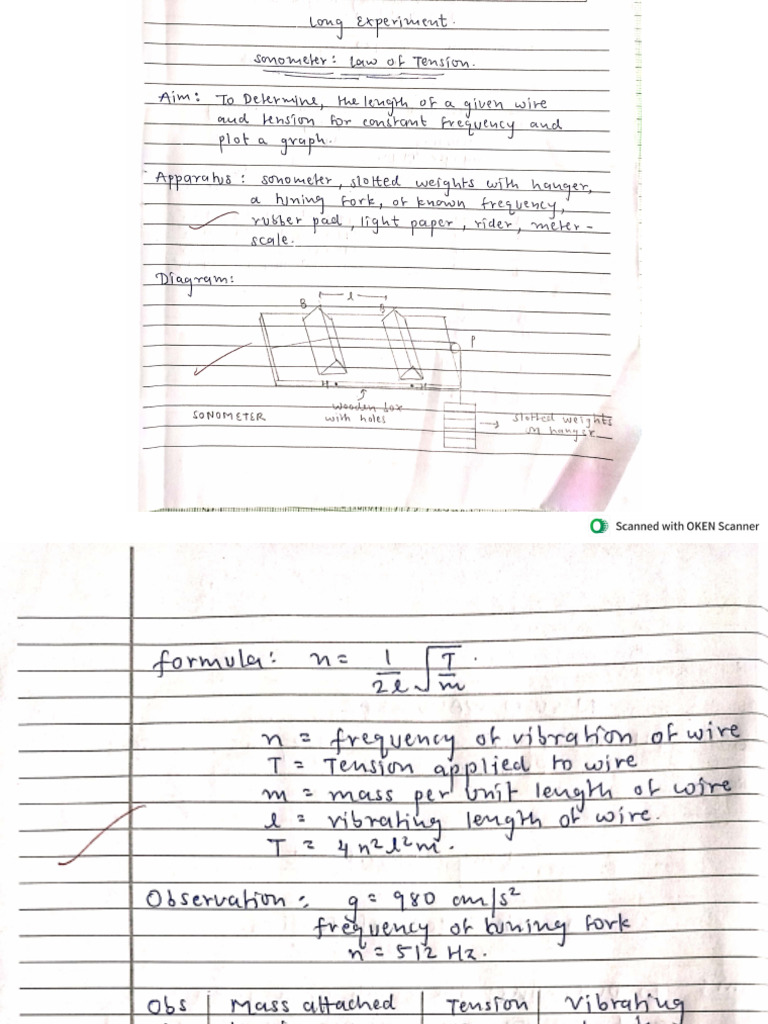 Long Experiment.
Sonometer: Law of Tension.
Aim: To Determine, the length of a given wire
and tension for constant frequency and
plot a graph.
Apparatus: sonometer, slotted weights with hanger,
a tuning fork, of known frequency,
rubber pad, light paper, rider, meter-
scale.
Diagram:
l
B
P
wooden box
with holes
SONOMETER
slotted weights
on hanger
Scanned with OKEN Scanner
formula: n = 1/2l √T/m.
n = frequency of vibration of wire
T = Tension applied to wire
m = mass per unit length of wire
l = vibrating length of wire.
T = 4n²l²m.
Observation: g = 980 cm/s²
frequency of tuning fork
n = 512 Hz.
Obs | Mass attached | Tension | Vibrating